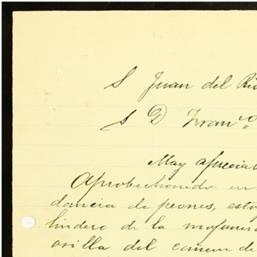 S Juan del Rí
S D Franco
May apreciab
Aprobechando un
dancia de peones, esto
lindero de la mojonera
orilla del camino de